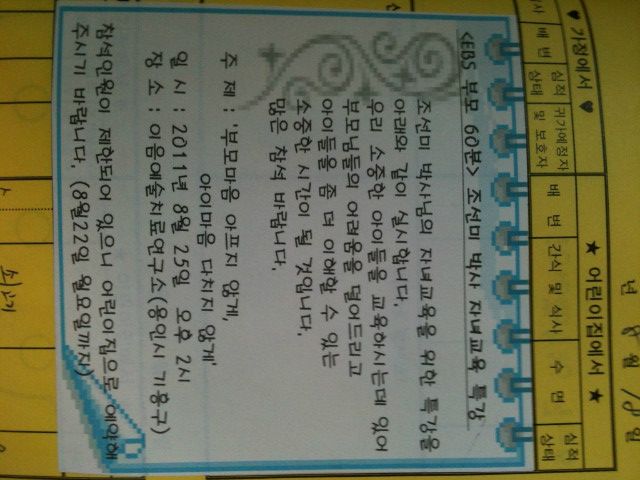 ♥ 가정에서 ♥
★ 어린이집에서 ★
배 변
심적 상태
귀가예정자 및 보호자
배 변
간식 및 식사
수 면
심적 상태
<EBS 부모 60분> 조선미 박사 자녀교육 특강
조선미 박사님의 자녀교육을 위한 특강을
아래와 같이 실시합니다.
우리 소중한 아이들을 교육하시는데 있어
부모님들의 어려움을 덜어드리고
아이들을 좀 더 이해할 수 있는
소중한 시간이 될 것입니다.
많은 참석 바랍니다.
주 제 : '부모마음 아프지 않게,
아이마음 다치지 않게'
일 시 : 2011년 8월 25일 오후 2시
장 소 : 이음예술치료연구소(용인시 기흥구)
참석인원이 제한되어 있으니 어린이집으로 예약해
주시기 바랍니다. (8월22일 월요일까지)